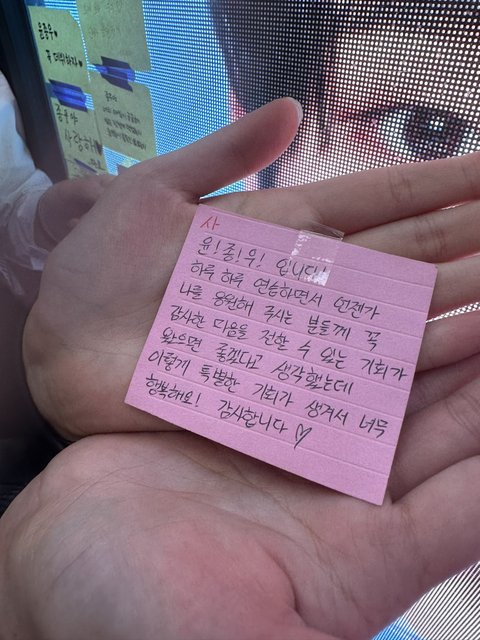 윤종우♥
꼭 데뷔하자♥
종우야
사랑해
종우야
사
윤!종!우! 입니다!
하루 하루 연습하면서 언젠가
나를 응원해 주시는 분들께 꼭
감사한 마음을 전할 수 있는 기회가
왔으면 좋겠다고 생각했는데
이렇게 특별한 기회가 생겨서 너무
행복해요! 감사합니다 ♡